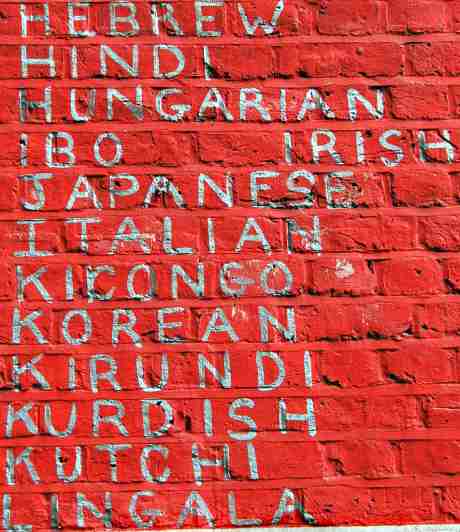 HEBREW
HINDI
HUNGARIAN
IBO IRISH
JAPANESE
ITALIAN
KICONGO
KOREAN
KIRUNDI
KURDISH
KUTCHI
LINGALA